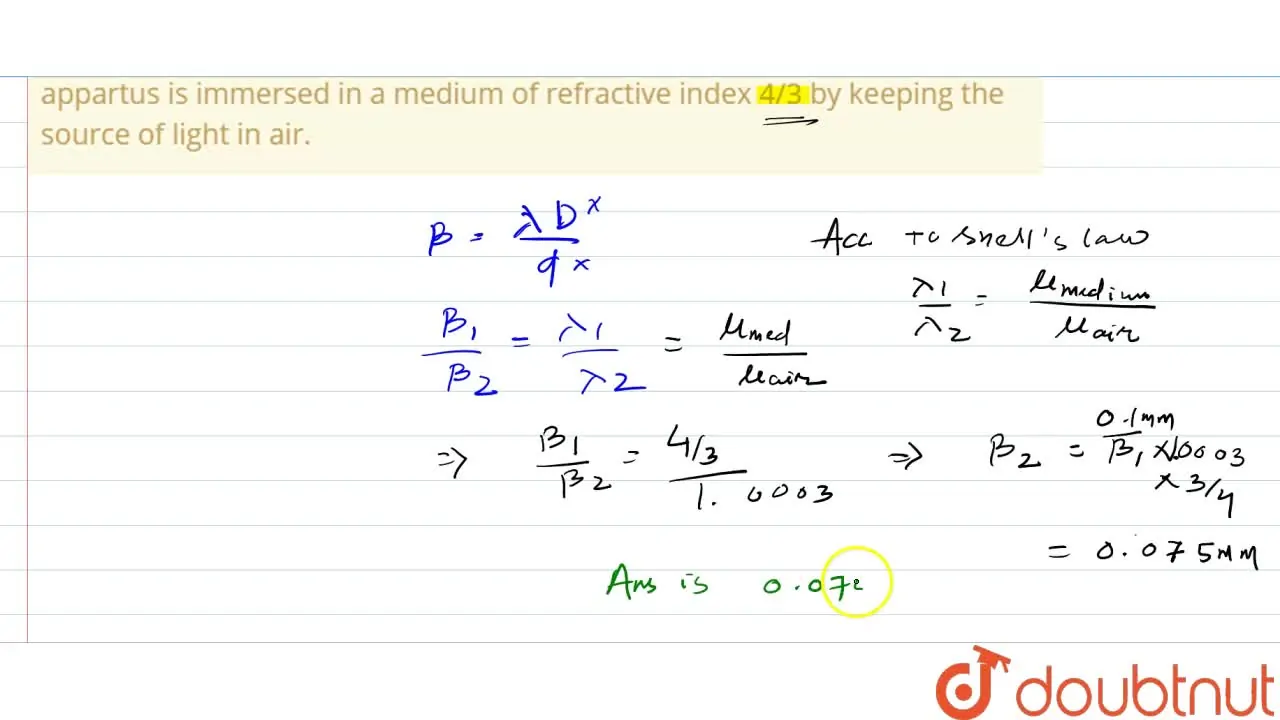 appartus is immersed in a medium of refractive index 4/3 by keeping the
source of light in air.
β = λD^x / d^x
Acc to snell's law
λ1/λ2 = μmedium/μair
β1/β2 = λ1/λ2 = μmed/μair
⇒ β1/β2 = 4/3 / 1.0003
⇒ β2 = β1 × 1.0003
0.1mm
× 3/4
= 0.075mm
Ans is 0.07
doubtnut